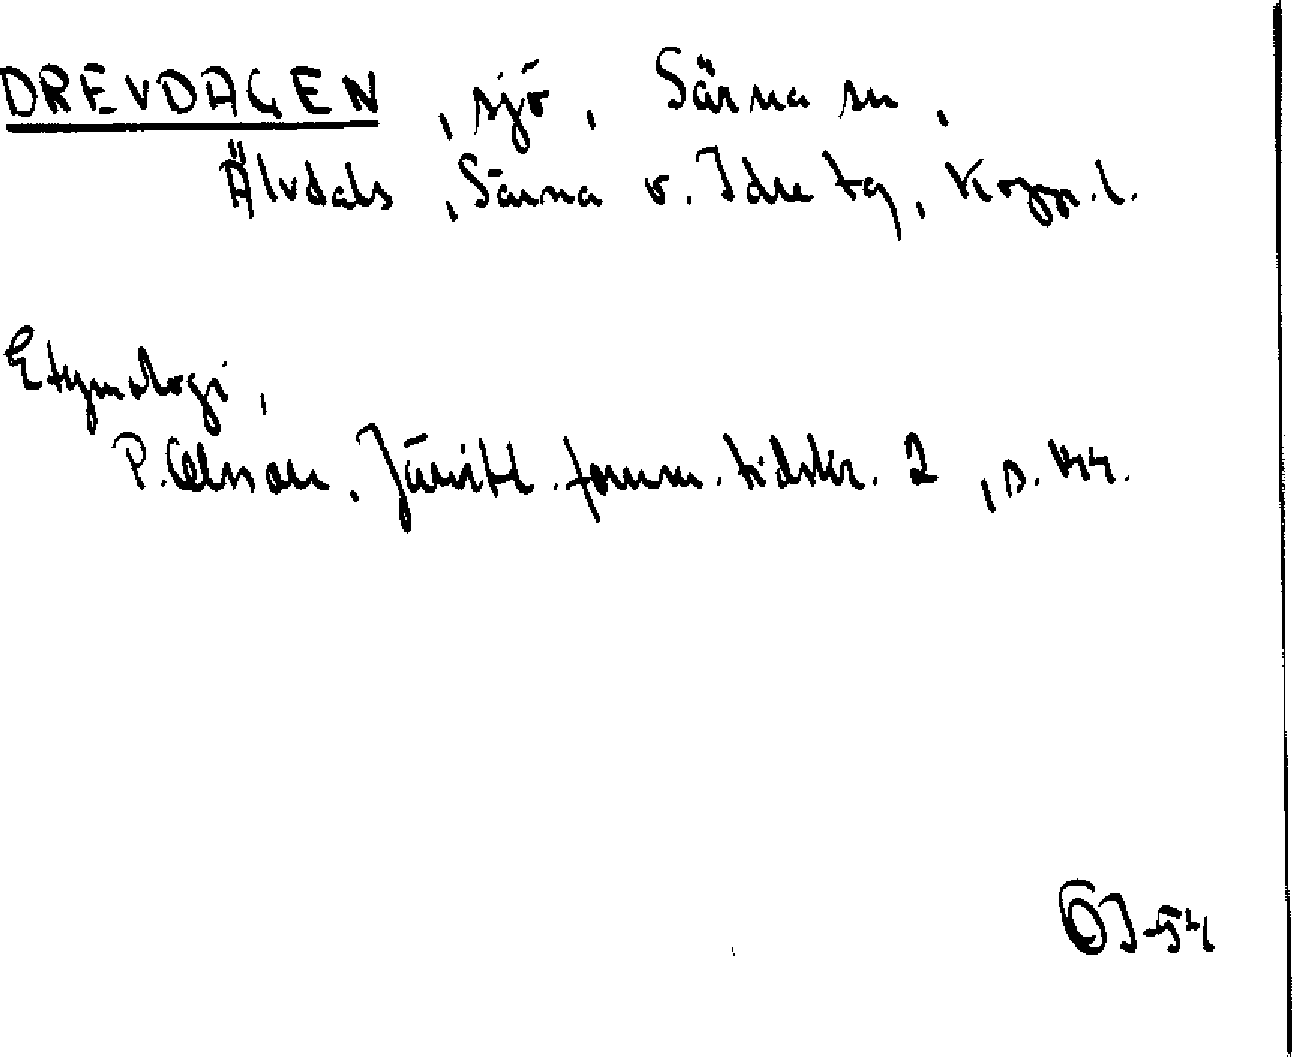 DREVDAGEN, sjö, Särna sn,
Älvdals, Särna o. Idre tg, Kopp. l.
Etymologi,
P. Olsson. Jämtl. fornm. tidskr. 2, s.
-54